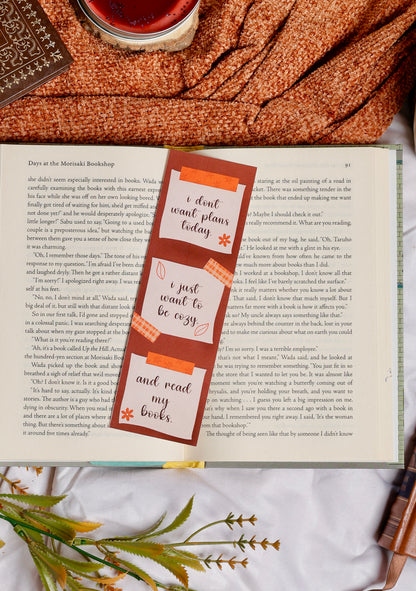 Days at the Morisaki Bookshop
she didn't seem especially interested in books. Wada
carefully examining the books with this earnest
his face while she was off on her own looking bored.
finally got tired of waiting for him, she'd get miffed and
not done yet!" and he would desperately apologize.
little longer." Sabu used to say, "Going to a used
couple is a preposterous idea," but watching the big
between them gave you a sense of how close they
it was charming.
"Oh, I remember those days." The tone of his
response to my question. "I'm afraid I've been
and laughed dryly. Then he got a rather distant
"I'm sorry!" I apologized right away. I was
self at first.
"No, no, I don't mind at all." Wada said,
big deal of it, but all with that distant look
So in our first talk, I'd gone and stepped
in a colossal panic. I was searching desperate
talk about then my gaze stopped at the book
"What is it you're reading there?"
"Ah, it's a book called Up the Hill.
the hundred-yen section at Morisaki Book
Wada picked up the book and
breathed a sigh of relief that we'd
"Oh! I don't know it. Is it a good
"It's hard to say, actually. It's kind
stories. The author is a guy who had
dying in obscurity. When you read
thing. But there's something about
it around five times already."
91
staring at the oil painting of a road in
There was something tender in the
the book that ended up making me want
Maybe I should check it out."
I really recommend it. What are you reading
book out of my bag, he said, "Oh, Taruho
He looked at me with a glint in his eye.
could've known from how often he came to the
I worked at a bookshop, I don't know all that
I feel like I've barely scratched the surface."
it really matters whether you know a lot about
That said, I don't know that much myself. But I
matters far more with a book is how it affects you."
My uncle always says something like that."
by always behind the counter in the back, lost in your
to make me curious about what on earth could
"Me? Oh no! I'm sorry. I was a terrible employee."
what I meant," Wada said, and he looked at
he was trying to remember something. "You just fit in so
it's like you're a part of the place. I'm not sure how
of you made me want to let you be. It was almost the
moment when you're watching a butterfly coming out of
chrysalis, and you're holding your breath, and you want to
keep on watching . . . I guess you left a big impression on me.
that's why when I saw you there a second ago with a book in
front of you, I remembered you right away. I said, 'It's the woman
from that bookshop.'"
The thought of being seen like that by someone I didn't know
i dont
want plans
today.
i just
want to
be cozy
and read
my
books.